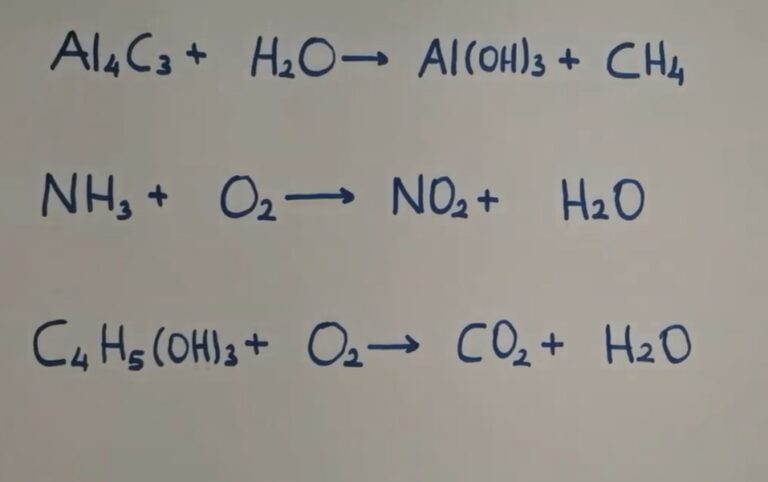 Al₄C₃ + H₂O → Al(OH)₃ + CH₄
NH₃ + O₂ → NO₂ + H₂O
C₄H₅(OH)₃ + O₂ → CO₂ + H₂O